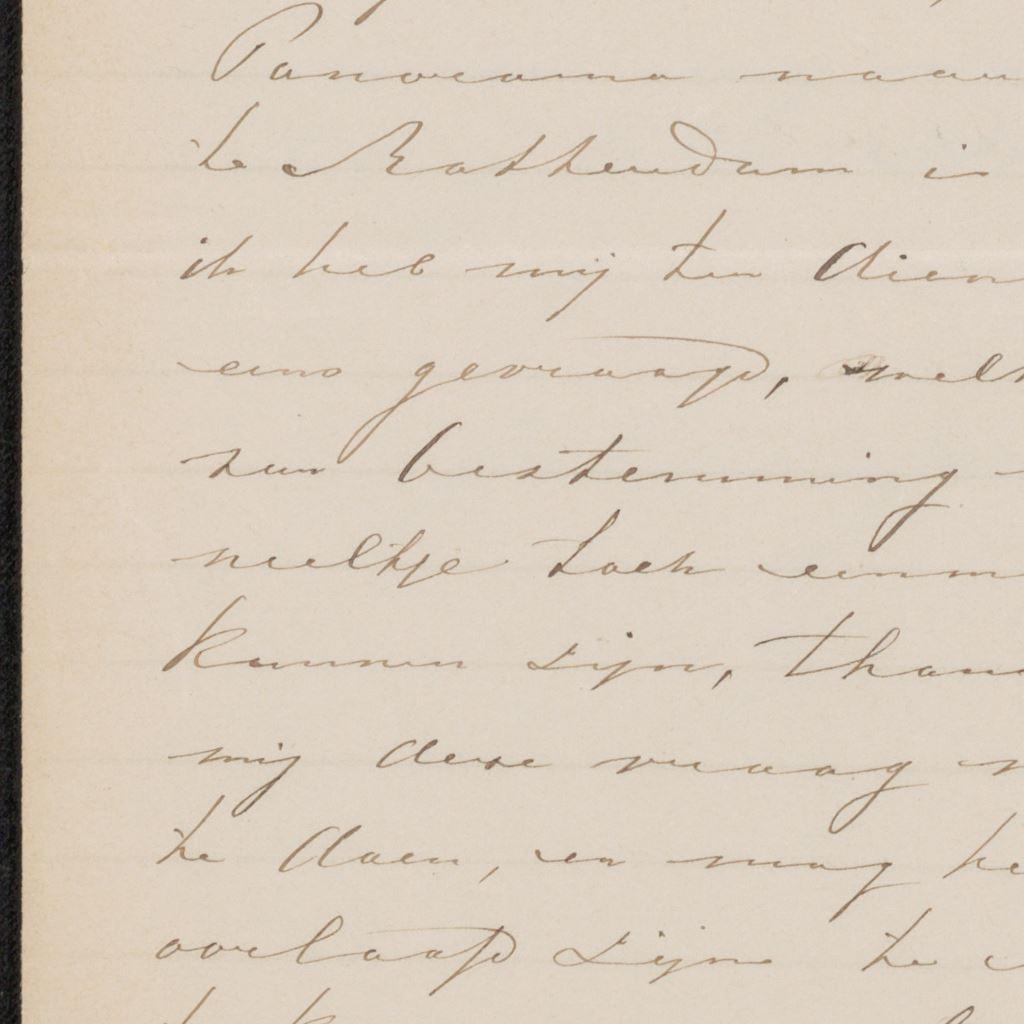 Panorama naar
te Rotterdam is
ik heb mij ten dien
eens gevraagd, welk
hun bestemming
neeltje toch eenm
kunnen zijn, than
mij deze vraag
te doen, en mag he
oorlaafd zijn te